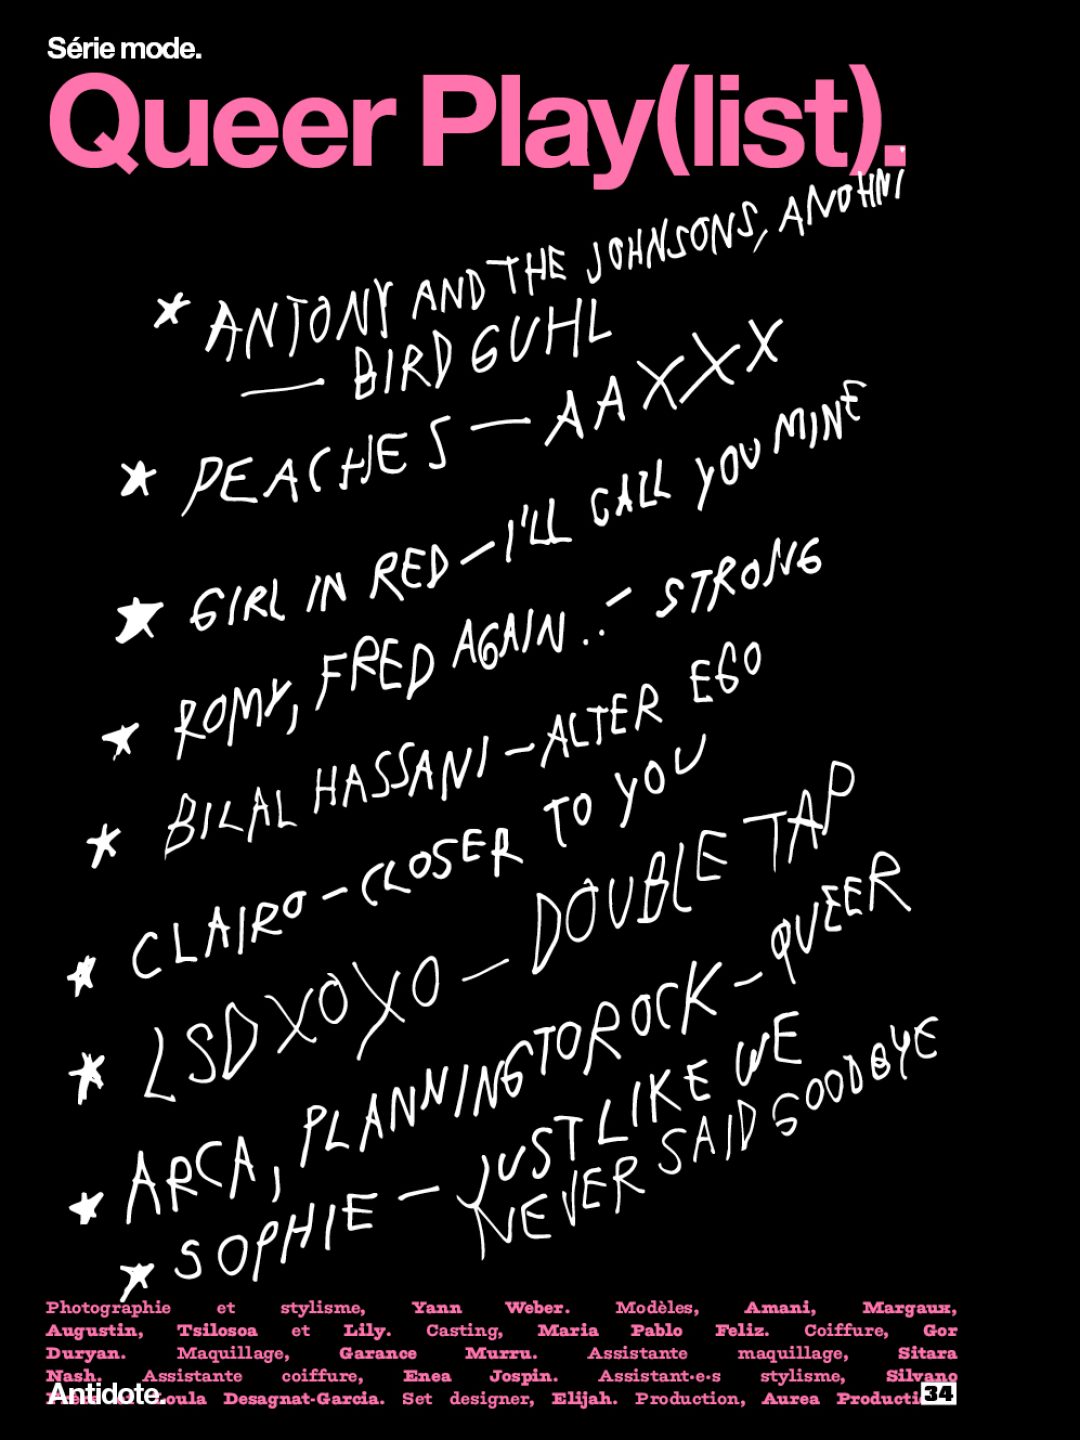 Série mode.
Queer Play(list).
★ ANTONY AND THE JOHNSONS, ANOHNI
— BIRD GUHL
★ PEACHES — AA XXX
★ GIRL IN RED — I'LL CALL YOU MINE
★ ROMY, FRED AGAIN.. — STRONG
★ BILAL HASSANI — ALTER EGO
★ CLAIRO — CLOSER TO YOU
★ LSDXOXO — DOUBLE TAP
★ ARCA, PLANNINGTOROCK — QUEER
★ SOPHIE — JUST LIKE WE
NEVER SAID GOODBYE
Photographie et stylisme, Yann Weber. Modèles, Amani, Margaux,
Augustin, Tsilosoa et Lily. Casting, Maria Pablo Feliz. Coiffure, Gor
Duryan. Maquillage, Garance Murru. Assistante maquillage, Sitara
Nash. Assistante coiffure, Enea Jospin. Assistant·e·s stylisme, Silvano
Loula Desagnat-Garcia. Set designer, Elijah. Production, Aurea
Antidote.
34